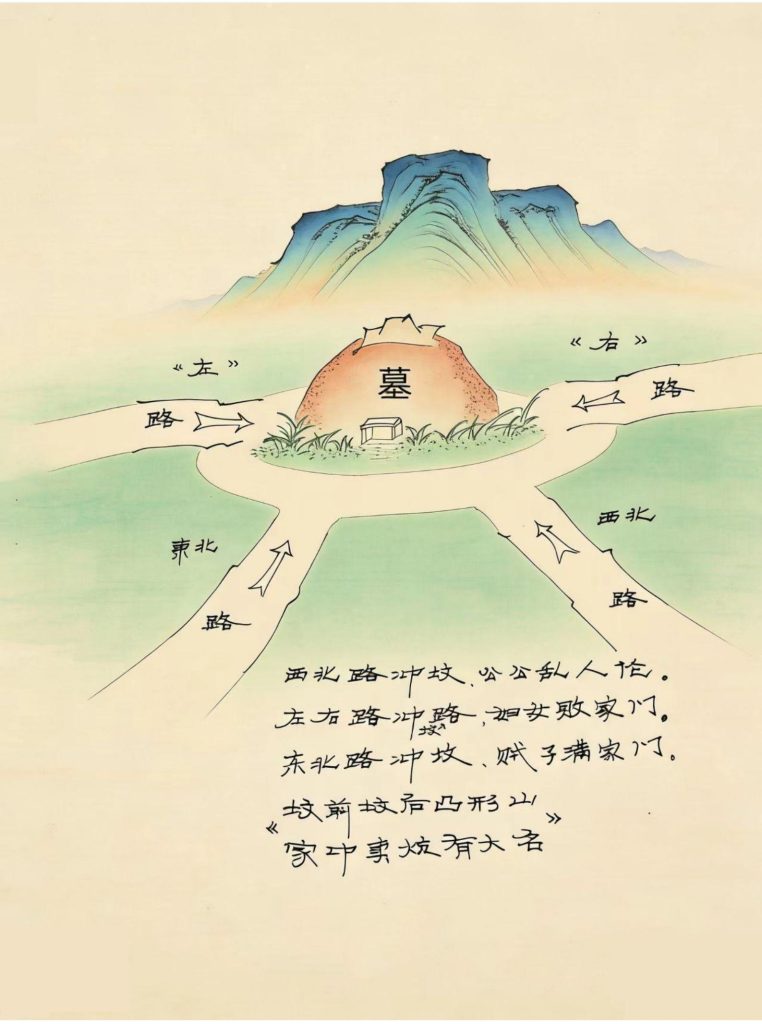 《左》
《右》
墓
路
路
东北
西北
路
路
西北路冲坟、公公乱人伦。
左右路冲路,妇女败家门。
坟
东北路冲坟、贼子满家门。
《坟前坟后凸形山
家中卖炕有大名》